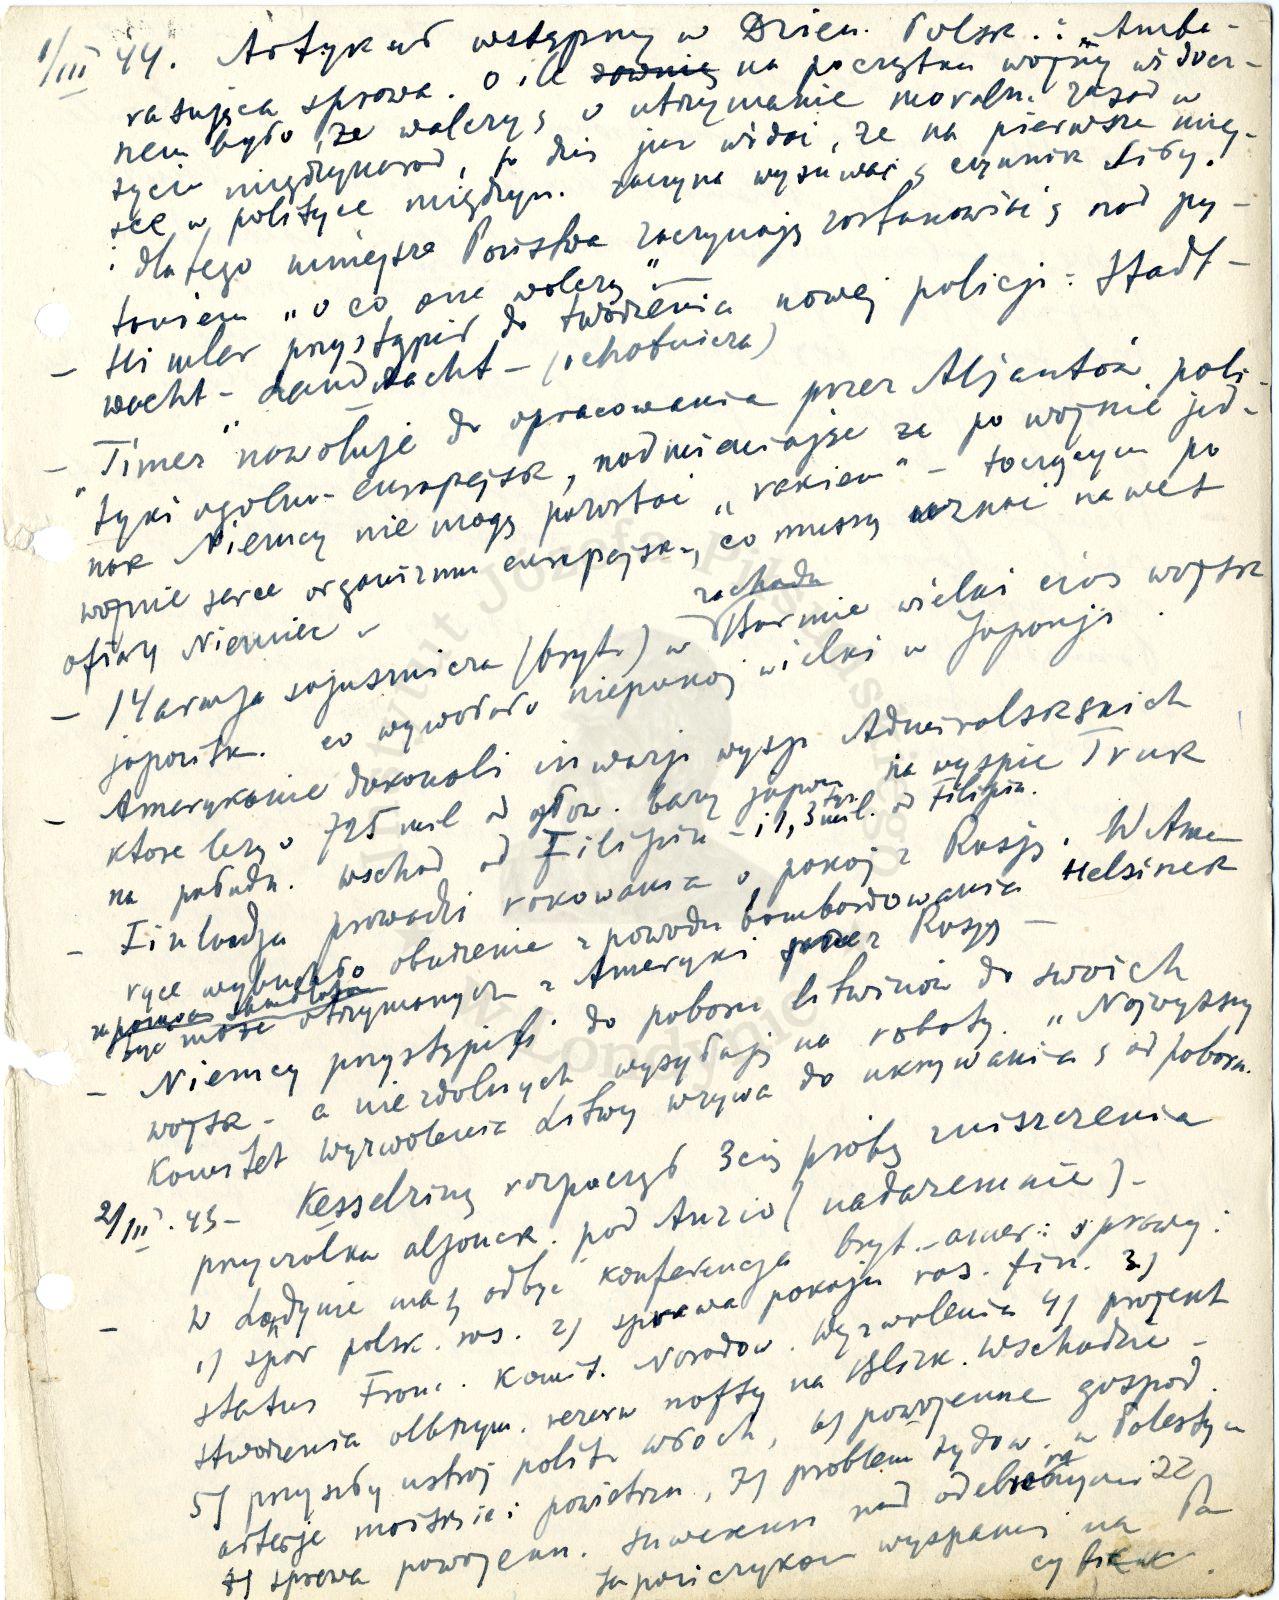 1/III 44. Artykuł wstępny w Dzien. Polsk.: „Amba-
rasująca sprawa. O ile na początku wojny widocz-
nem było, że walczą o utrzymanie moraln. zasad w
życiu międzynarod, to dziś już widać, że na pierwsze miej-
sce w polityce międzyn. zaczyna wysuwać ę czynnik siły.
i dlatego mniejsze Państwa zaczynają zastanowić ę nad py-
taniem „o co one walczą" —
— Himler przystąpił do tworzenia nowej policji: Stadt-
wacht – Landwacht – (ochotnicza)
— „Times" nawołuje do opracowania przez Aljantów poli-
tyki ogólno-europejsk, nadmieniając że po wojnie jed-
nak Niemcy nie mogą pozostać „rakiem" – toczącym po
wojnie serce organizmu europejsk., co muszą uznać nawet
ofiary Niemiec.
— 14 armja sojusznicza (bryt.) w zachodn Burmie wielki cios wojsk
japońsk. co wywołało niepokój wielki w Japonji.
— Amerykanie dokonali inwazji wysp Admiralskich
które leżą o 725 mil od głów. bazy japon. na wyspie Truk
na połudn. wschod od Filipin – i 1,3 tys. mil. od Filipin.
— Finlandja prowadzi rokowania o pokój z Rosją. W Ame
ryce wybuchło oburzenie z powodu bombardowania Helsinek
być może otrzymanych z Ameryki przez Rosję —
— Niemcy przystąpili do poboru litwinów do swoich
wojsk – a niezdolnych wysyłają na roboty. „Najwyższy
Komitet Wyzwolenia Litwy wzywa do ukrywania ę od poboru.
2/III. 43 – Kesselring rozpoczął 3cią próbę zniszczenia
przyczółka aljanck. pod Anzio (nadaremnie) –
— W Londynie mają odbyć konferencja bryt.-amer.: sprawy:
1) spór polsk. ros. 2) sprawa pokoju ros. fin. 3)
status Franc. Komit. Narodow. Wyzwolenia 4) projekt
stworzenia olbrzym. rezerw nafty na Blizk. Wschodzie –
5) przyszły ustrój polit. Włoch, 6) powojenne gospod.
arterje morskie i powietrzn, 7) problem żydow. w Palestyn
8) sprawa powojenn. suweren nad odebranymi zz
Japończykom wyspami na Pa
cyfiku.